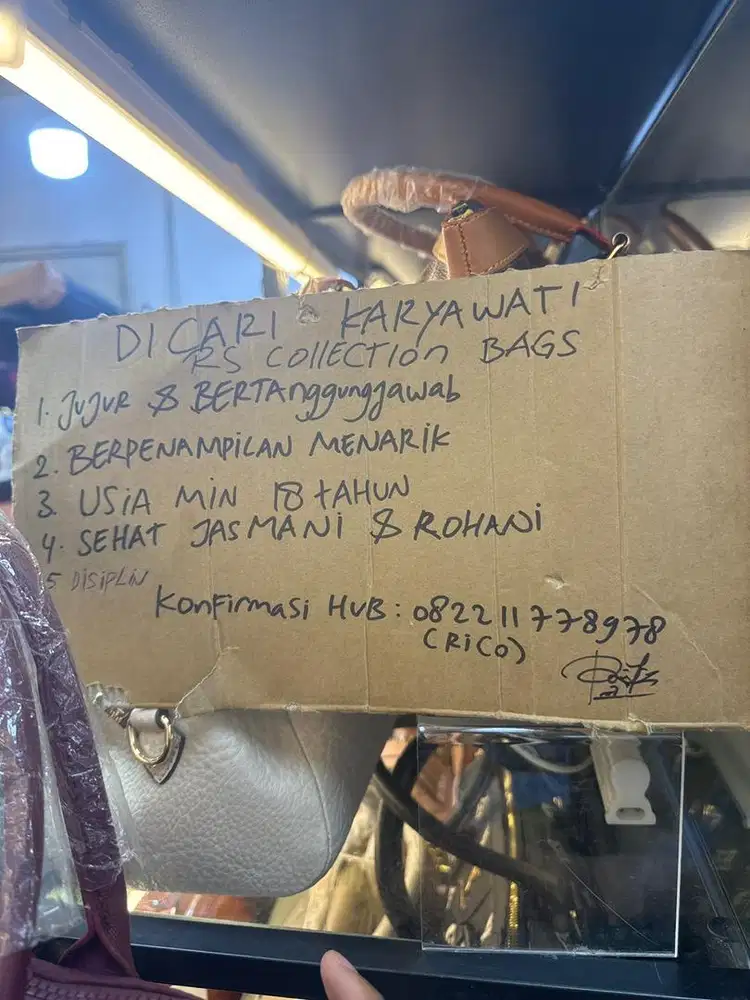 DICARI KARYAWATI
RS COllECTIOn BAGS
1. JuJuR & BERTAnggungjawab
2. BERPENAMPiLAN MENARiK
3. USiA MiN 18 tAHUN
4. SEHAT JASMANi & ROHANi
5 DiSiPLiN
KonFirmasi HUB : 082211778978
(RiCo)